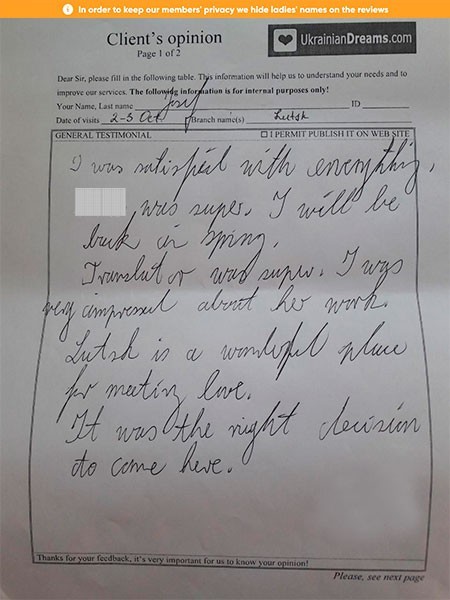 In order to keep our members' privacy we hide ladies' names on the reviews
Client's opinion
Page 1 of 2
UkrainianDreams.com
Dear Sir, please fill in the following table. This information will help us to understand your needs and to
improve our services. The following information is for internal purposes only!
Your Name, Last name Josef ID
Date of visits 2-3 Oct Branch name(s) Lutsk
GENERAL TESTIMONIAL I PERMIT PUBLISH IT ON WEB SITE
I was satisfied with everything.
was super. I will be
back in spring.
Translator was super. I was
very impressed about her work.
Lutsk is a wonderful place
for meeting love.
It was the right decision
to come here.
Thanks for your feedback, it's very important for us to know your opinion!
Please, see next page